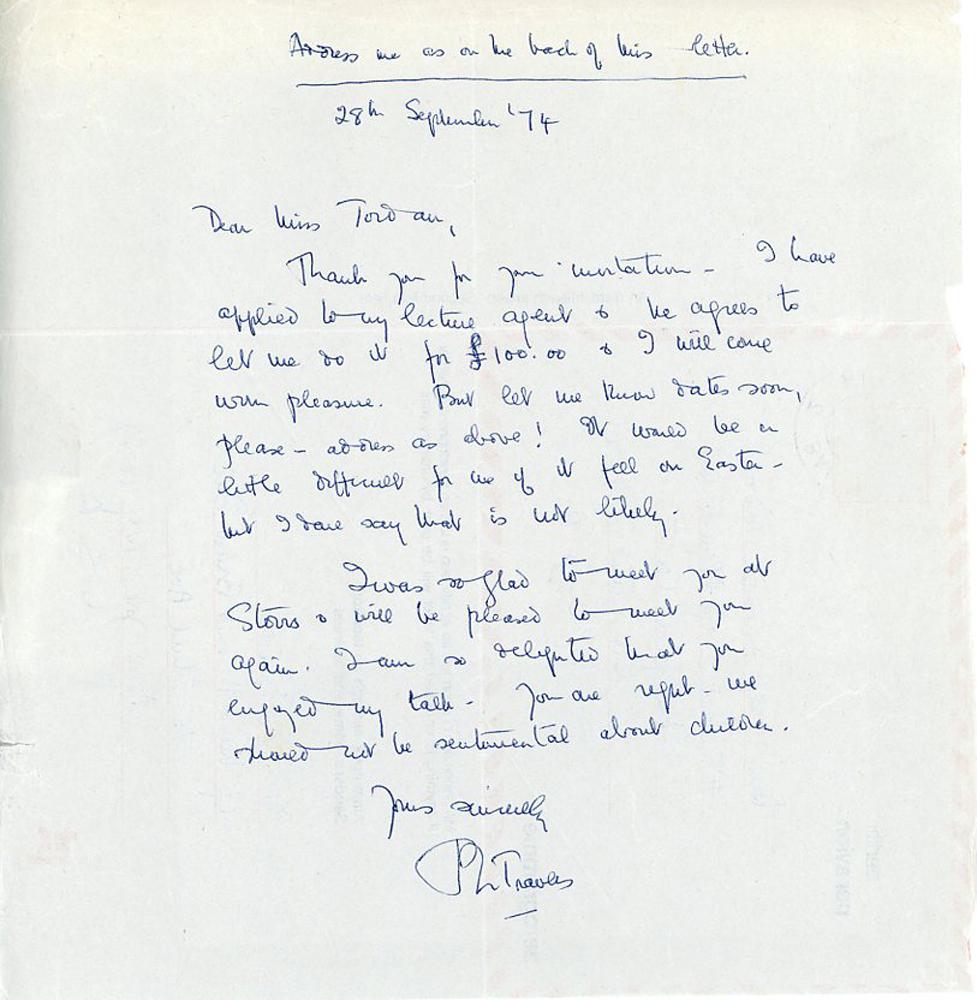 Address me as on the back of this letter.
28th September '74
Dear Miss Jordan,
Thank you for your invitation - I have
applied to my lecture agent & he agrees to
let me do it for £100.00 & I will come
with pleasure. But let me know dates soon,
please - address as above! It would be a
little difficult for me if it fell on Easter -
but I dare say that is not likely.
I was so glad to meet you at
Storrs & will be pleased to meet you
again. I am so delighted that you
enjoyed my talk - You are right - we
should not be sentimental about children.
Yours sincerely
P L Travers